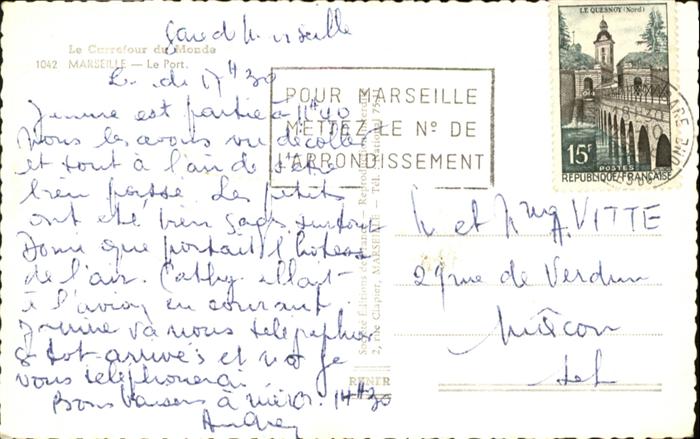 Gare d Marseille
Le Carrefour du Monde
1042 MARSEILLE — Le Port.
L. di 17H30
Jeanne est partie à 11H40
Nous les avons vu décoller
et tout à l'air de s'être
bien passé. Les petits
ont été bien sages surtout
que portait l'hôtesse
de l'air. Cathy allait
à l'avion en courant.
Jeanne va nous télégraphier
sitôt arrivés et je
vous téléphonerai.
Bons baisers à
Audrey
POUR MARSEILLE
METTEZ LE No DE
L'ARRONDISSEMENT
LE QUESNOY (Nord)
15F
POSTES
REPUBLIQUE FRANÇAISE
GARE
M et Mme A. VITTE
29 rue de Verdun
Mâcon
2, rue Clapier, MARSEILLE